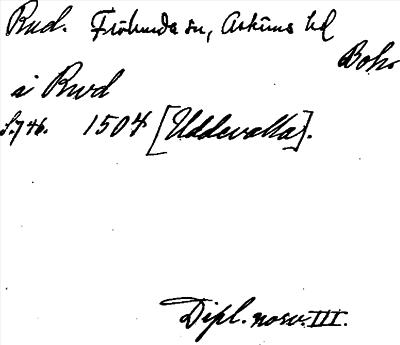 Rud. Frökinda sn, Askims hd
Boh.
i Rwd
s. 746. 1504 [Uddevalla].
Dipl. norv. III.